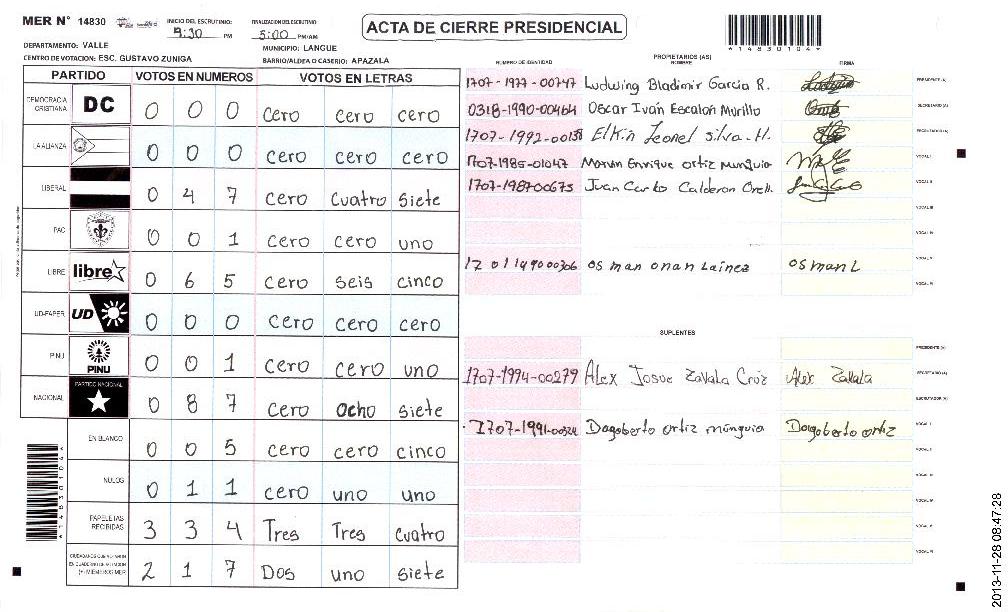 MER N° 14830
INICIO DEL ESCRUTINIO: 9:30 PM
FINALIZACION DEL ESCRUTINIO 5:00 PM/AM
ACTA DE CIERRE PRESIDENCIAL
*14830104*
DEPARTAMENTO: VALLE
MUNICIPIO: LANGUE
CENTRO DE VOTACION: ESC. GUSTAVO ZUNIGA
BARRIO/ALDEA O CASERIO: APAZALA
PARTIDO VOTOS EN NUMEROS VOTOS EN LETRAS
DEMOCRACIA CRISTIANA DC 0 0 0 cero cero cero
LA ALIANZA 0 0 0 cero cero cero
LIBERAL 0 4 7 cero cuatro siete
PAC 0 0 1 cero cero uno
LIBRE libre 0 6 5 cero seis cinco
UD-FAPER UD 0 0 0 cero cero cero
PINU PINU 0 0 1 cero cero uno
NACIONAL PARTIDO NACIONAL 0 8 7 cero ocho siete
EN BLANCO 0 0 5 cero cero cinco
NULOS 0 1 1 cero uno uno
PAPELETAS RECIBIDAS 3 3 4 Tres Tres cuatro
CIUDADANOS QUE VOTARON EN CUADERNO DE VOTACION (+) MIEMBROS MER 2 1 7 Dos uno siete
*14830104*
NUMERO DE IDENTIDAD PROPIETARIOS (AS) NOMBRE FIRMA
1707-1977-00747 Ludwing Bladimir Garcia R. PRESIDENTE (A)
0318-1990-00464 Oscar Iván Escalón Murillo SECRETARIO (A)
1707-1992-00138 Elkin Leonel Silva. H. ESCRUTADOR (A)
1707-1985-01047 Marvin Enrique Ortiz Munguia VOCAL I
1707-1987-00675 Juan Carlos Calderon Orell. VOCAL II
VOCAL III
VOCAL IV
1701199000306 osman onan Lainez osman L VOCAL V
VOCAL VI
SUPLENTES
PRESIDENTE (A)
1707-1994-00279 Alex Josue Zavala Cruz Alex Zavala SECRETARIO (A)
ESCRUTADOR (A)
1707-1991-00324 Dagoberto ortiz munguia Dagoberto ortiz VOCAL I
VOCAL II
VOCAL III
VOCAL IV
VOCAL V
VOCAL VI
2013-11-28 08:47:28